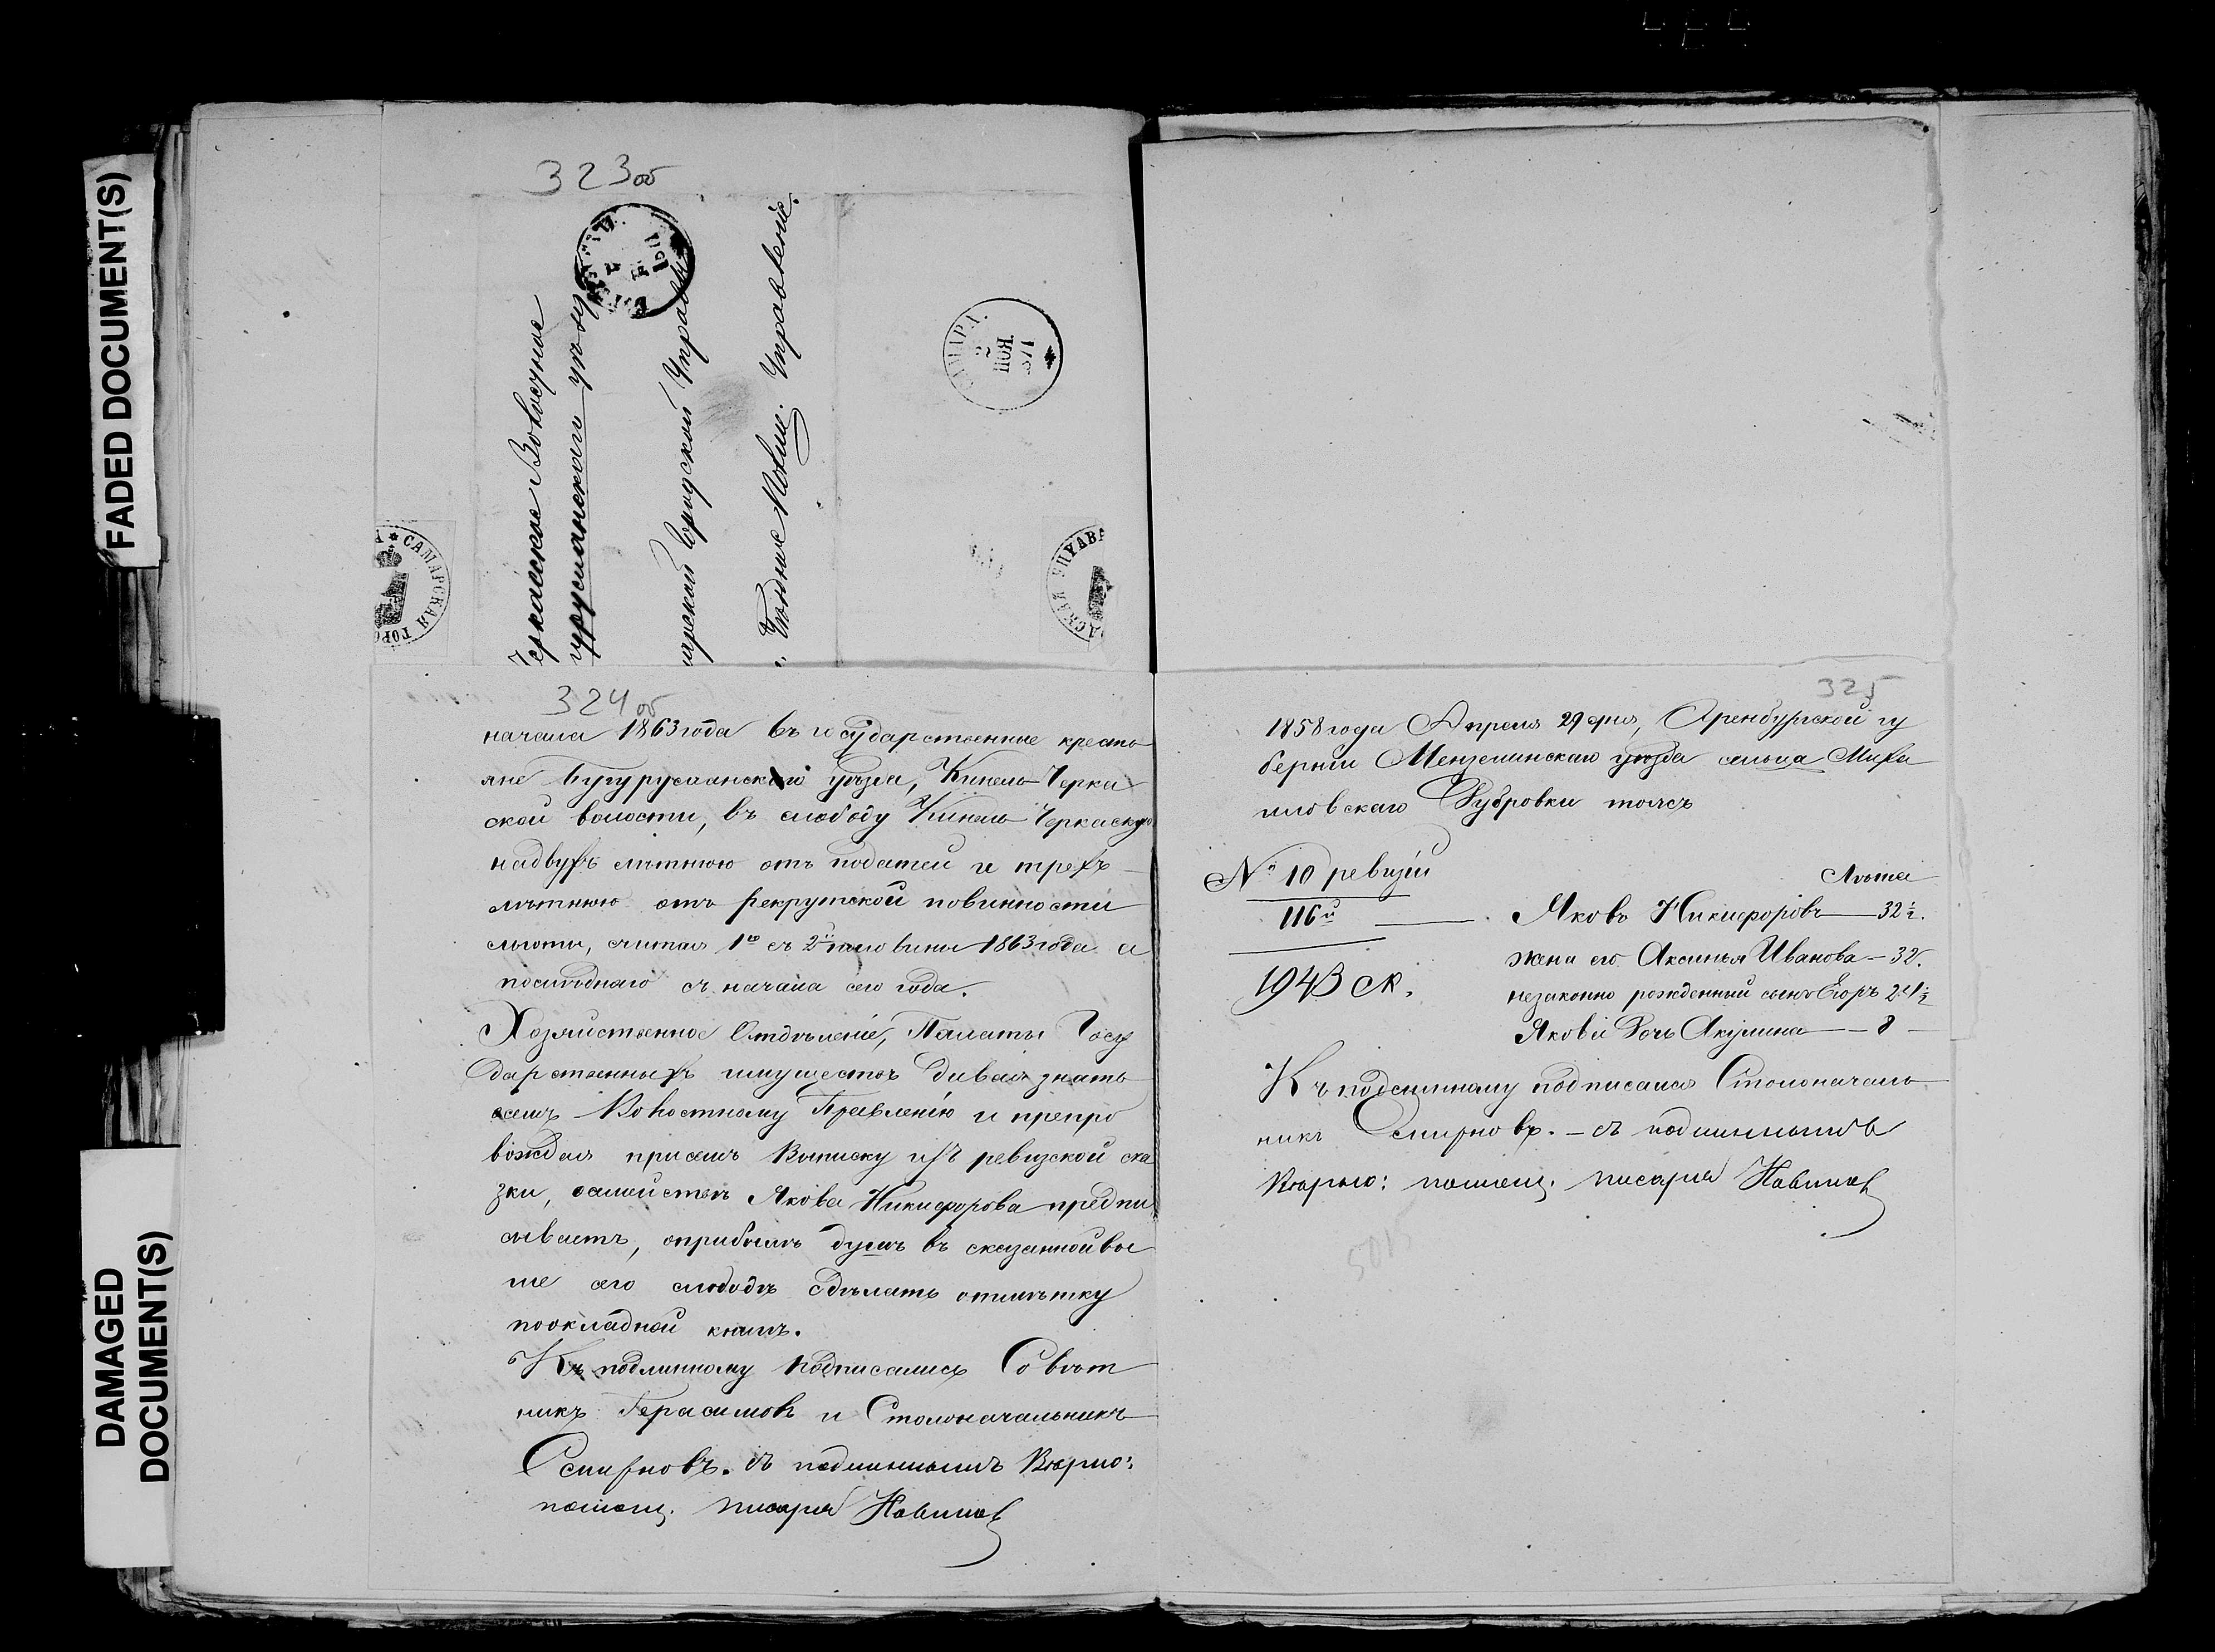 FADED DOCUMENT(S)
DAMAGED
DOCUMENT(S)
323об
Черкасское Волостное
гурусланского уезду
арской Городской Управы
Управленіе.
САМАРА.
2
НОЯ
1871
САМАРСКАЯ ГОРО
ДСКАЯ УПРАВА
324об
начала 1863 года въ государственные кресть
яне Бугурусланской уѣзда, Кинель Черка
ской волости, въ слободу Кинель Черкаскую
надвухъ лѣтнюю отъ податей и трехъ
лѣтнюю отъ рекрутской повинности
льготы, считая 1ю съ 2й половины 1863 года а
послѣднаго съ начала сего года.
Хозяйственное Отдѣленіе, Палаты Госу
дарственныхъ имуществъ давая знать
о семъ Волостному Правленію и препро
вождая присемъ Выписку изъ ревизской ска
зки, о семействѣ Якова Никифорова предпи
сываетъ, оприбыли душъ въ сказанной вы
ше сего слободѣ сдѣлать отмѣтку
поокладной книгѣ.
Къ подлинному подписались Совѣт
никъ Герасимовъ и Столоначальникъ
Смирновъ. съ подлиннымъ Вѣрно:
помощ. писаря
325
1858 года Апреля 29 дня, Оренбургской гу
берніи Мензелинскаго уѣзда сельца Миха
иловскаго Дубровки тожъ
№ 10 ревизіи
Лѣта
116й Яковъ Никифоровъ — 32½.
жена его Аксинья Иванова — 32.
1943 М.
незаконно рожденный сынъ Егоръ 24½
Якова дочь Акулина — 8 —
Къ подлинному подписалъ Столоначаль
никъ Смирновъ. — съ подлиннымъ
Вѣрно: помощ. писаря